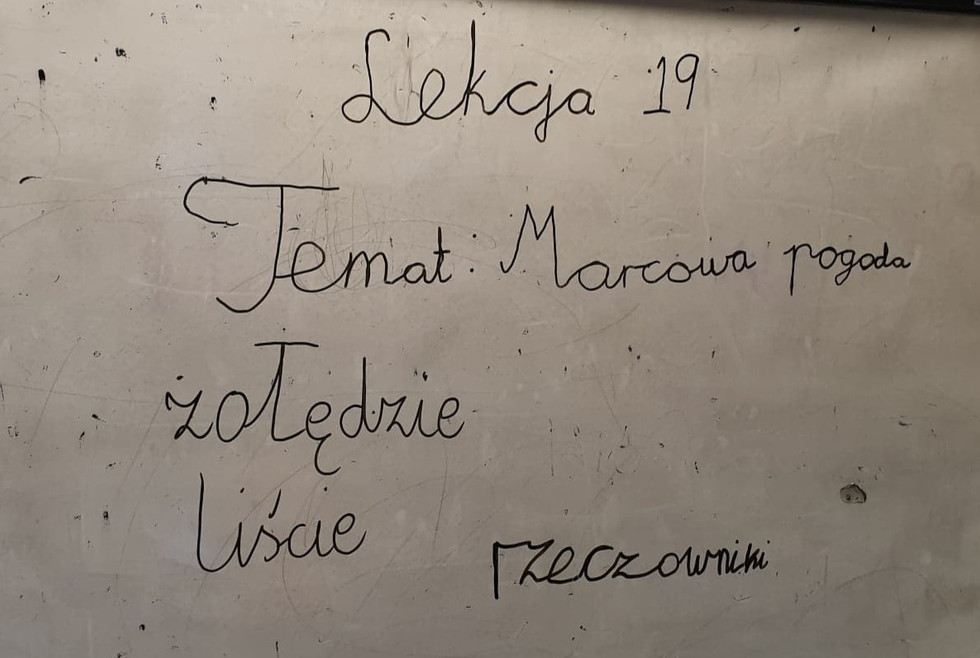 Lekcja 19
Temat: Marcowa pogoda
żołędzie
liście
rzeczowniki